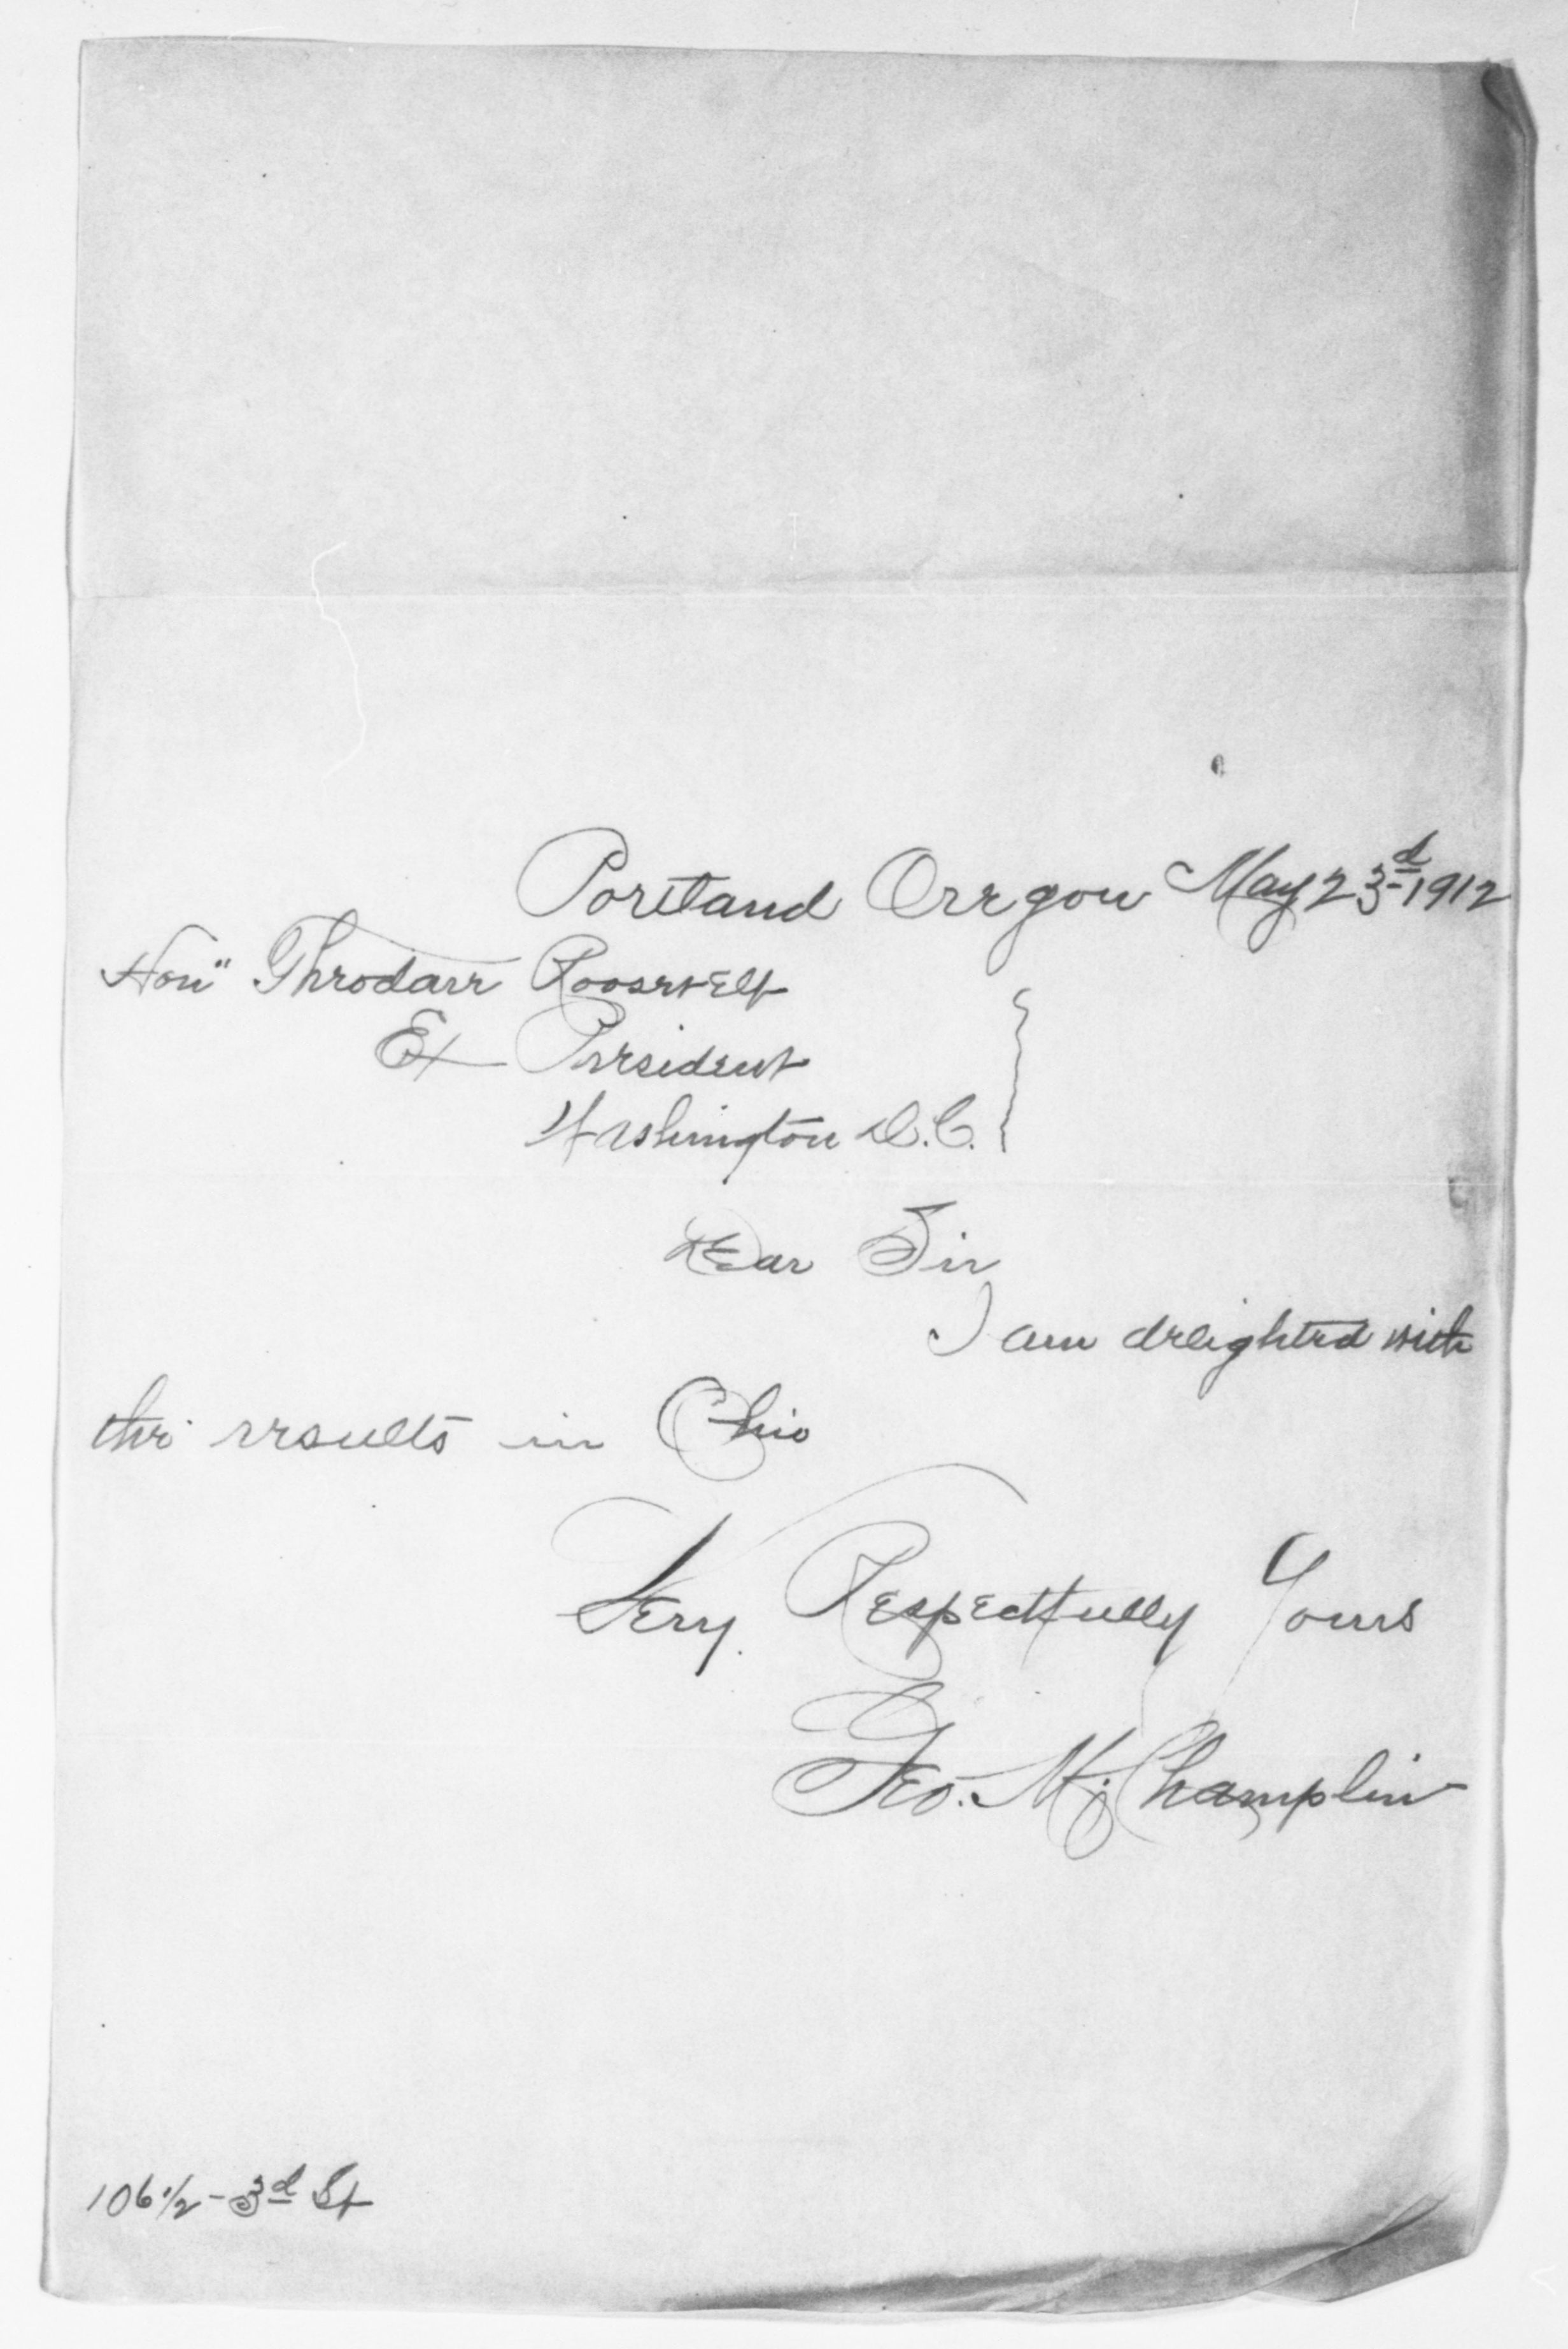 Portland Oregon May 23d 1912
Hon" Theodore Roosevelt
Ex President
Washington D.C.
Dear Sir
I am delighted with
the results in Ohio
Very Respectfully Yours
Geo. M. Champlin
106 1/2 - 3d St